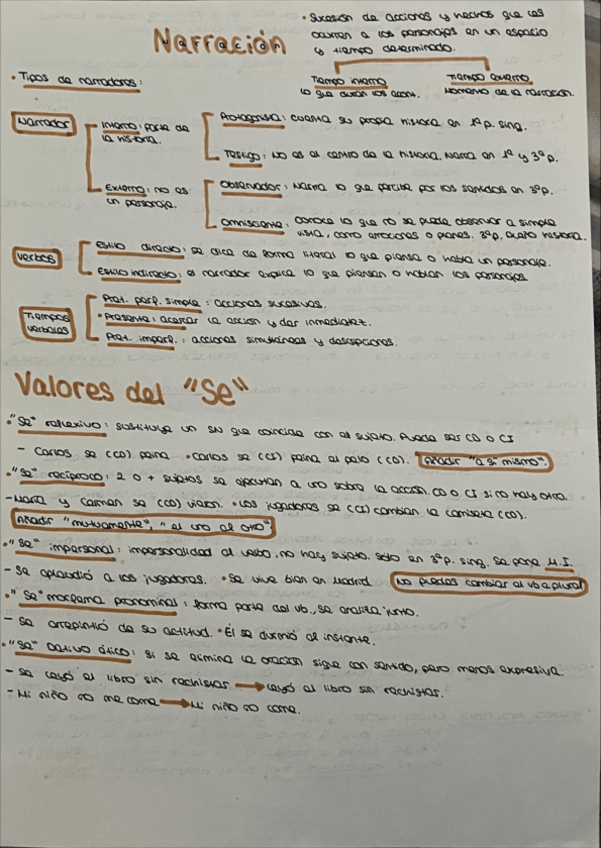 Narración
• Sucesión de acciones y hechos que les
ocurren a los personajes en un espacio
y tiempo determinado.
Tiempo interno
lo que duran los acont.
Tiempo externo
Momento de la narración.
• Tipos de narradores:
Narrador
Interno: parte de
la historia.
Protagonista: cuenta su propia historia en 1ª p. sing.
Testigo: No es el centro de la historia. Narra en 1ª y 3ª p.
Externo: no es
un personaje.
Observador: Narra lo que percibe por los sentidos en 3ªp.
Omnisciente: conoce lo que no se puede observar a simple
vista, como emociones o planes. 3ªp, historia.
Verbos
Estilo directo: se dice de forma literal lo que piensa o habla un personaje.
Estilo indirecto: el narrador explica lo que piensan o hablan los personajes.
Tiempos
verbales
Pret. perf. simple: acciones sucesivas.
• Presente: acercar la acción y dar inmediatez.
Pret. imperf.: acciones simultáneas y descripciones.
Valores del "Se"
• "Se" reflexivo: sustituye un SN que coincide con el sujeto. Puede ser CD o CI
- Carlos se (CD) peina. • Carlos se (CI) peina el pelo (CD). Añadir "a sí mismo".
• "Se" recíproco: 2 o + sujetos se ejecutan a uno sobre la acción. CD o CI si no hay otro.
- María y Carmen se (CD) vieron. • Los jugadores se (CI) cambian la camiseta (CD).
Añadir "mutuamente", "el uno al otro"
• "Se" impersonal: impersonalidad al verbo, no hay sujeto. Solo en 3ªp. sing. Se pone M.I.
- Se aplaudió a los jugadores. • Se vive bien en Madrid. No puedes cambiar el vb a plural
• "Se" morfema pronominal: forma parte del vb., se analiza junto.
- Se arrepintió de su actitud. • Él se durmió al instante.
• "Se" dativo ético: si se elimina la oración sigue con sentido, pero menos expresiva.
- Se leyó el libro sin rechistar → Leyó el libro sin rechistar.
- Mi niño no me come → Mi niño no come.